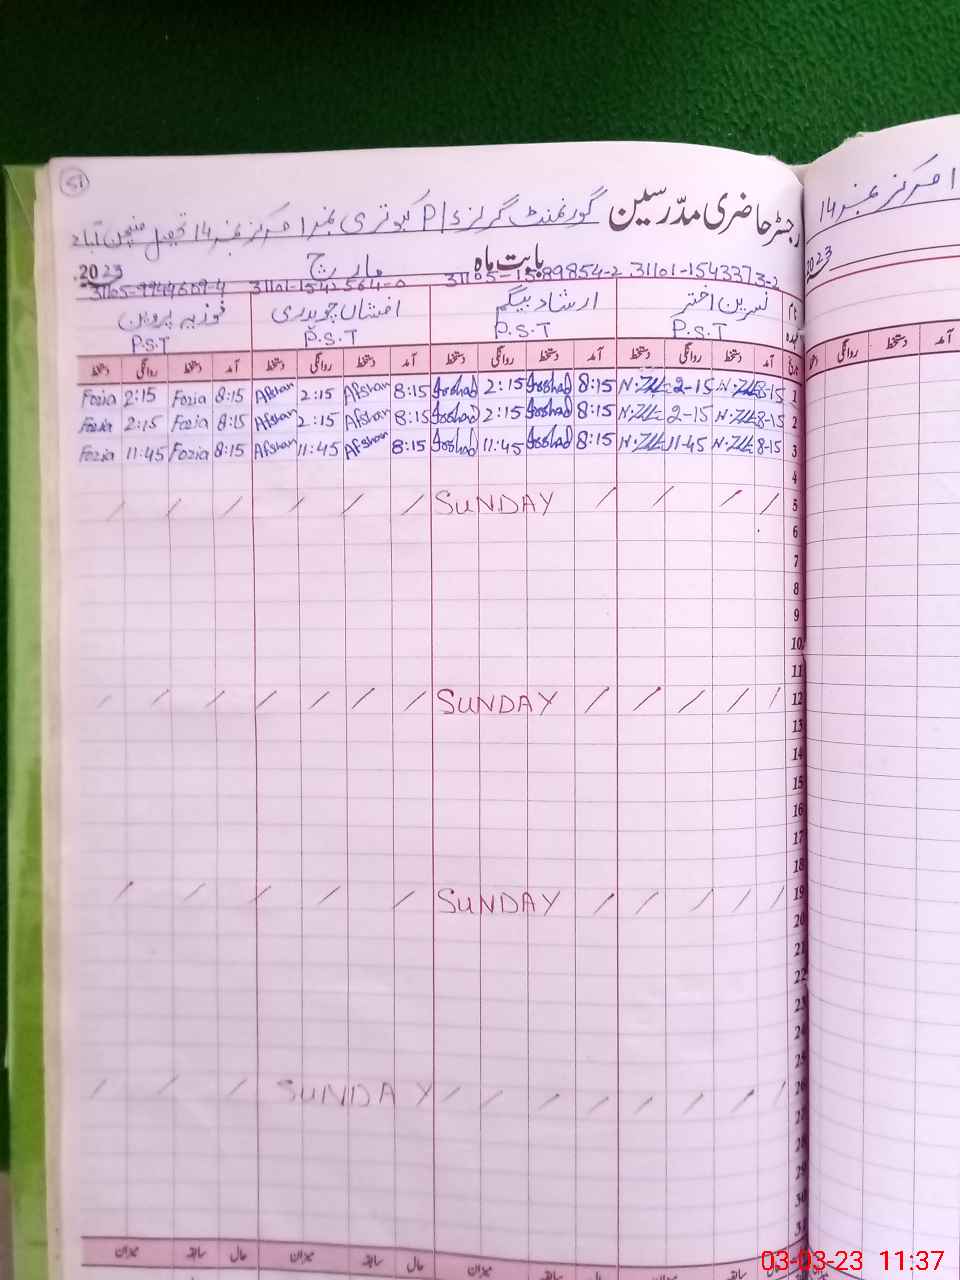 51
رجسٹر حاضری مدرسین گورنمنٹ گرلز P/S کبوتری نمبر 1 مرکز نمبر 14 تحصیل منچن آباد
بابت ماہ مارچ 2023
31101-1543373-2 31105-1589854-2
نام نسرین اختر ارشاد بیگم افشاں چوہدری فوزیہ پروین
عہدہ P.S.T P.S.T P.S.T P.S.T
تاریخ آمد دستخط روانگی دستخط آمد دستخط روانگی دستخط آمد دستخط روانگی دستخط آمد دستخط روانگی دستخط
Fozia 2:15 Fozia 8:15 Afshan 2:15 Afshan 8:15 Irshad 2:15 Irshad 8:15 2-15 8-15 1
Fozia 2:15 Fozia 8:15 Afshan 2:15 Afshan 8:15 Irshad 2:15 Irshad 8:15 2-15 8-15 2
Fozia 11:45 Fozia 8:15 Afshan 11:45 Afshan 8:15 Irshad 11:45 Irshad 8:15 11-45 8-15 3
4
/ / / / / / / SUNDAY / / / / 5
6
7
8
9
10
11
/ / / / / / / SUNDAY / / / / / 12
13
14
15
16
17
18
/ / / / / SUNDAY / / / / / 19
20
21
22
23
24
25
/ / / SUNDAY / / / / / / / / 26
27
28
29
30
31
حال سابقہ میزان حال سابقہ میزان
1 مرکز نمبر 14
2023
آمد دستخط روانگی
03-03-23 11:37